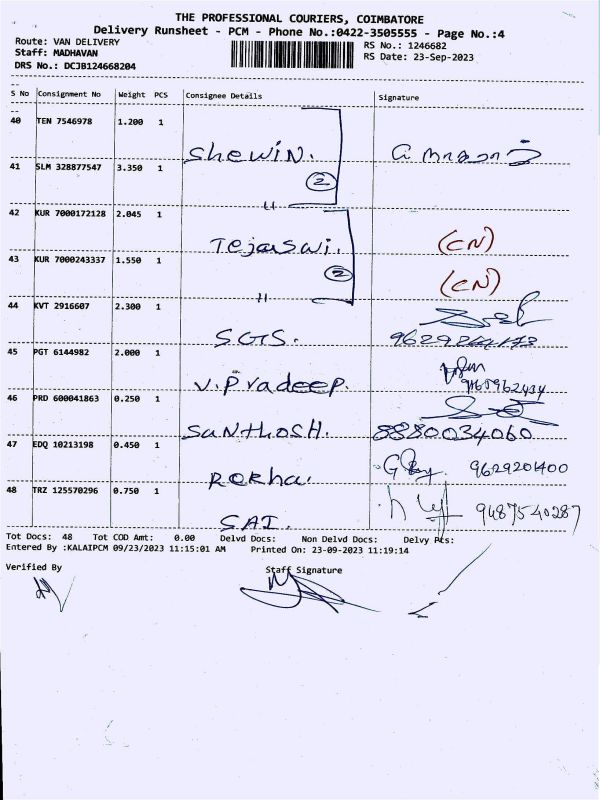 THE PROFESSIONAL COURIERS, COIMBATORE
Delivery Runsheet - PCM - Phone No.:0422-3505555 - Page No.:4
Route: VAN DELIVERY
RS No.: 1246682
Staff: MADHAVAN
RS Date: 23-Sep-2023
DRS No.: DCJB124668204
S No Consignment No Weight PCS Consignee Details Signature
40 TEN 7546978 1.200 1
Shewin. 2
41 SLM 328877547 3.350 1
"
42 KUR 7000172128 2.045 1
Tejaswi. (CN)
43 KUR 7000243337 1.550 1
2 (CN)
"
44 KVT 2916607 2.300 1
SGS.
45 PGT 6144982 2.000 1
V.Pradeep.
46 PRD 600041863 0.250 1
SANTHOSH. 8880034060
47 EDQ 10213198 0.450 1
Rekha. 9629201400
48 TRZ 125570296 0.750 1
SAI. 9487540287
Tot Docs: 48 Tot COD Amt: 0.00 Delvd Docs: Non Delvd Docs: Delvy Pcs:
Entered By :KALAIPCM 09/23/2023 11:15:01 AM Printed On: 23-09-2023 11:19:14
Verified By Staff Signature